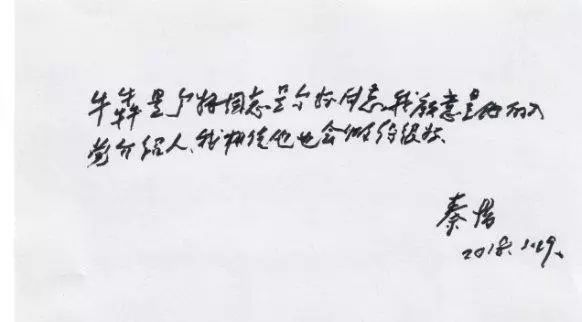 牛犇是个好同志是个好同志，我愿意是他的入
党介绍人，我相信他也会做的很好。
秦怡
2018.1.19.